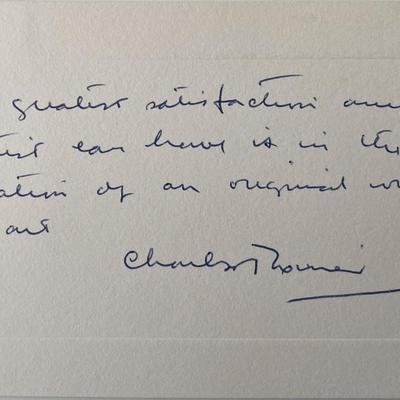 greatest satisfaction any
tist can have is in the
ation of an original w
art
Charles